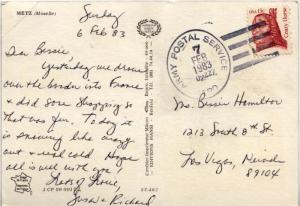 METZ (Moselle)
Sunday
6 Feb 83
Dear Bessie
Yesterday we drove
over the border into France
+ did some shopping so
that was fun. Today it
is snowing like crazy
out + real cold. Hope
all is well with you!
Lots of Love,
Susan & Richard
USA 13c
Crazy Horse
ARMY POSTAL SERVICE
7
FEB
1983
APO
Ms. Bessie Hamilton
1213 South 8th St.
Las Vegas, Nevada
89104